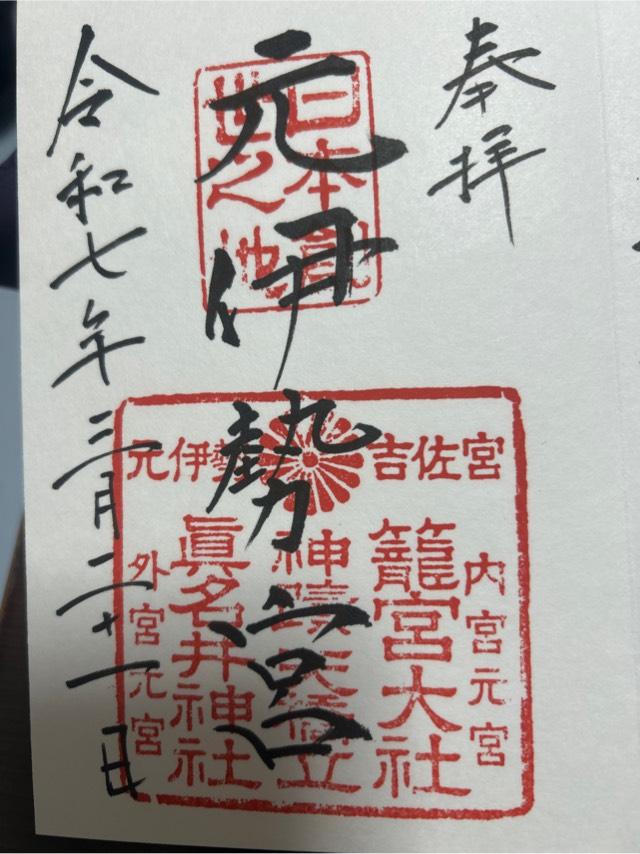 奉拝
日本創
世之地
元伊勢宮
元伊勢 吉佐宮
内宮元宮
籠宮大社
神蹟天橋立
眞名井神社
外宮元宮
令和七年三月二十一日